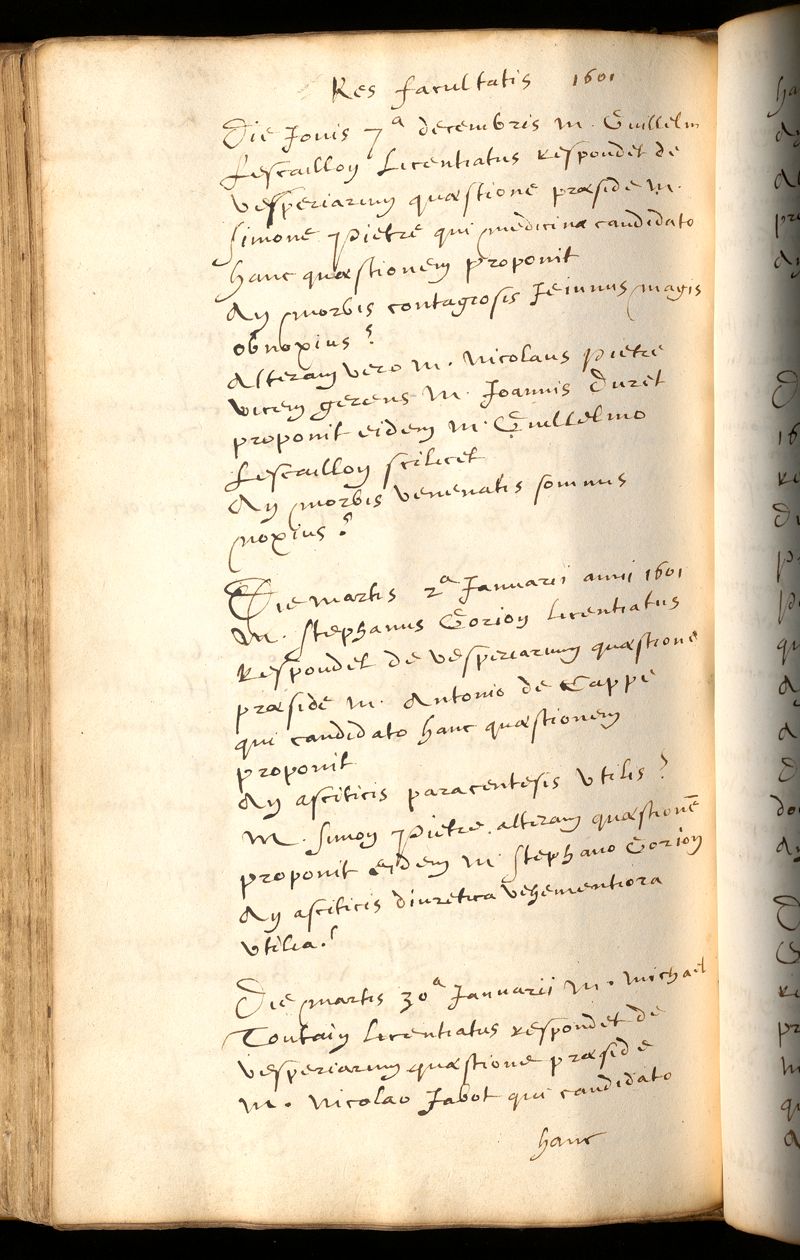 Res facultatis 1601
Die Jovis 7ª decembris M. Guillelm
Lescailloy Licentiatus respondet de
vesperiarum quæstione præside M.
Simone Pietre qui medicinæ candidato
hanc quæstionem proponit
An morbis contagiosis Jeiunus magis
obnoxius?
Alteram vero M. Nicolaus Pietre
vicem gerens M. Joannis Duret
proponit eidem M. Guillelmo
Lescailloy scilicet
An morbis venenatis somnus
noxius?
Die martis 2ª Januarii anni 1601
M. Stephanus Gorion licentiatus
Respondet de vesperiarum quæstione
præside M. Antonio de Cappe
qui candidato hanc quæstionem
proponit
An asciticis paracentesis utilis?
M. Simon Pietre alteram quæstionē
proponit eidem M. Stephano Gorion
An asciticis diuretica vehementiora
utilia?
Die martis 30ª Januarii M. Michael
Toutain licentiatus respondet de
vesperiarum quæstione præside
M. Nicolao Jabot qui candidato
hanc